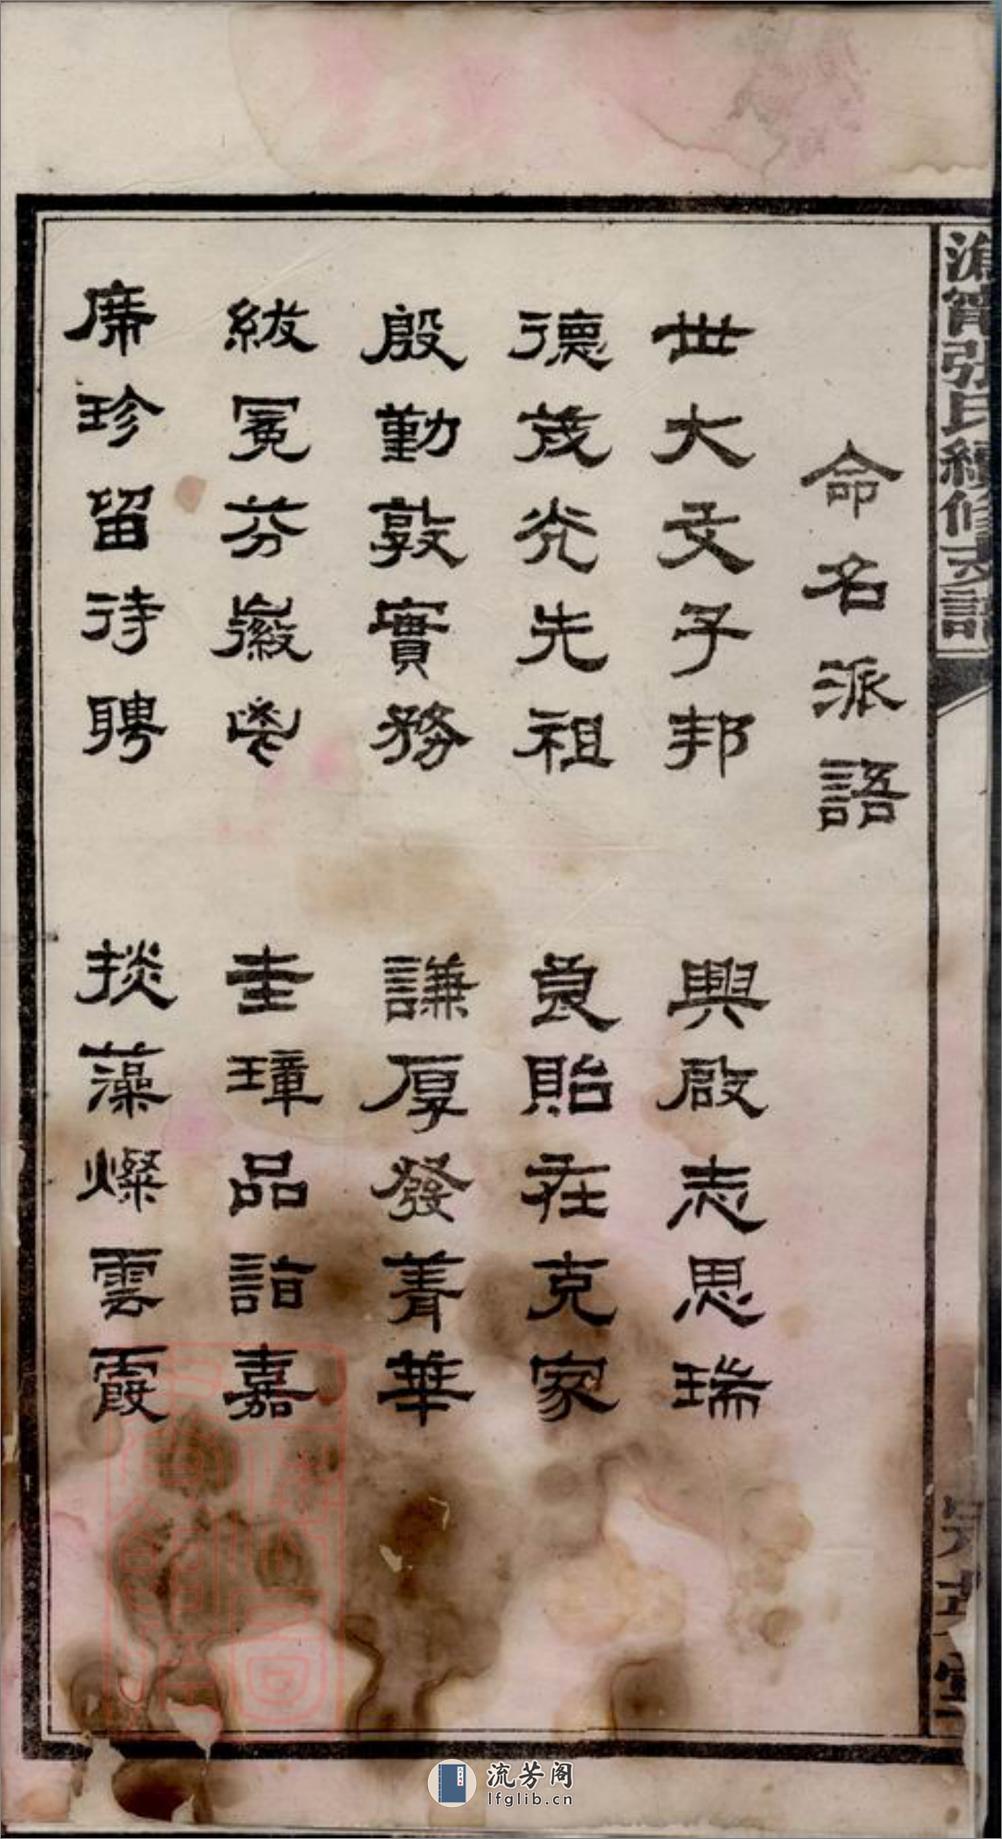 張氏續修支譜
命名派語
世大文子邦
興啟志思瑞
德茂光先祖
良貽在克家
殷勤敦實務
謙厚發菁華
紱冕芬徽
圭璋品詣嘉
席珍留待聘
掞藻燦雲霞
流芳阁
lfglib.cn